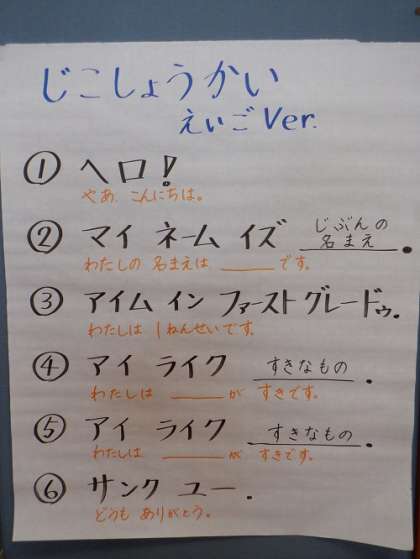 じこしょうかい
えいごVer.
① ヘロ!
やあ、こんにちは。
② マイ ネーム イズ じぶんの名まえ.
わたしの 名まえは ____ です。
③ アイム イン ファースト グレードゥ.
わたしは 1ねんせいです。
④ マイ ライク すきなもの.
わたしは ____ が すきです。
⑤ アイ ライク すきなもの.
わたしは ____ が すきです。
⑥ サンク ユー.
どうも ありがとう。